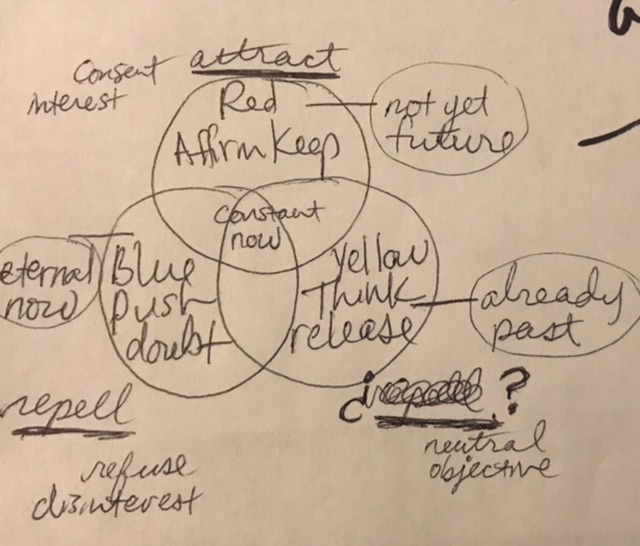 attract
Consent
interest
Red
Affirm Keep
not yet
future
constant
now
eternal
now
Blue
Push
doubt
yellow
Think
release
already
past
repell
refuse
disinterest
¿ ?
neutral
objective